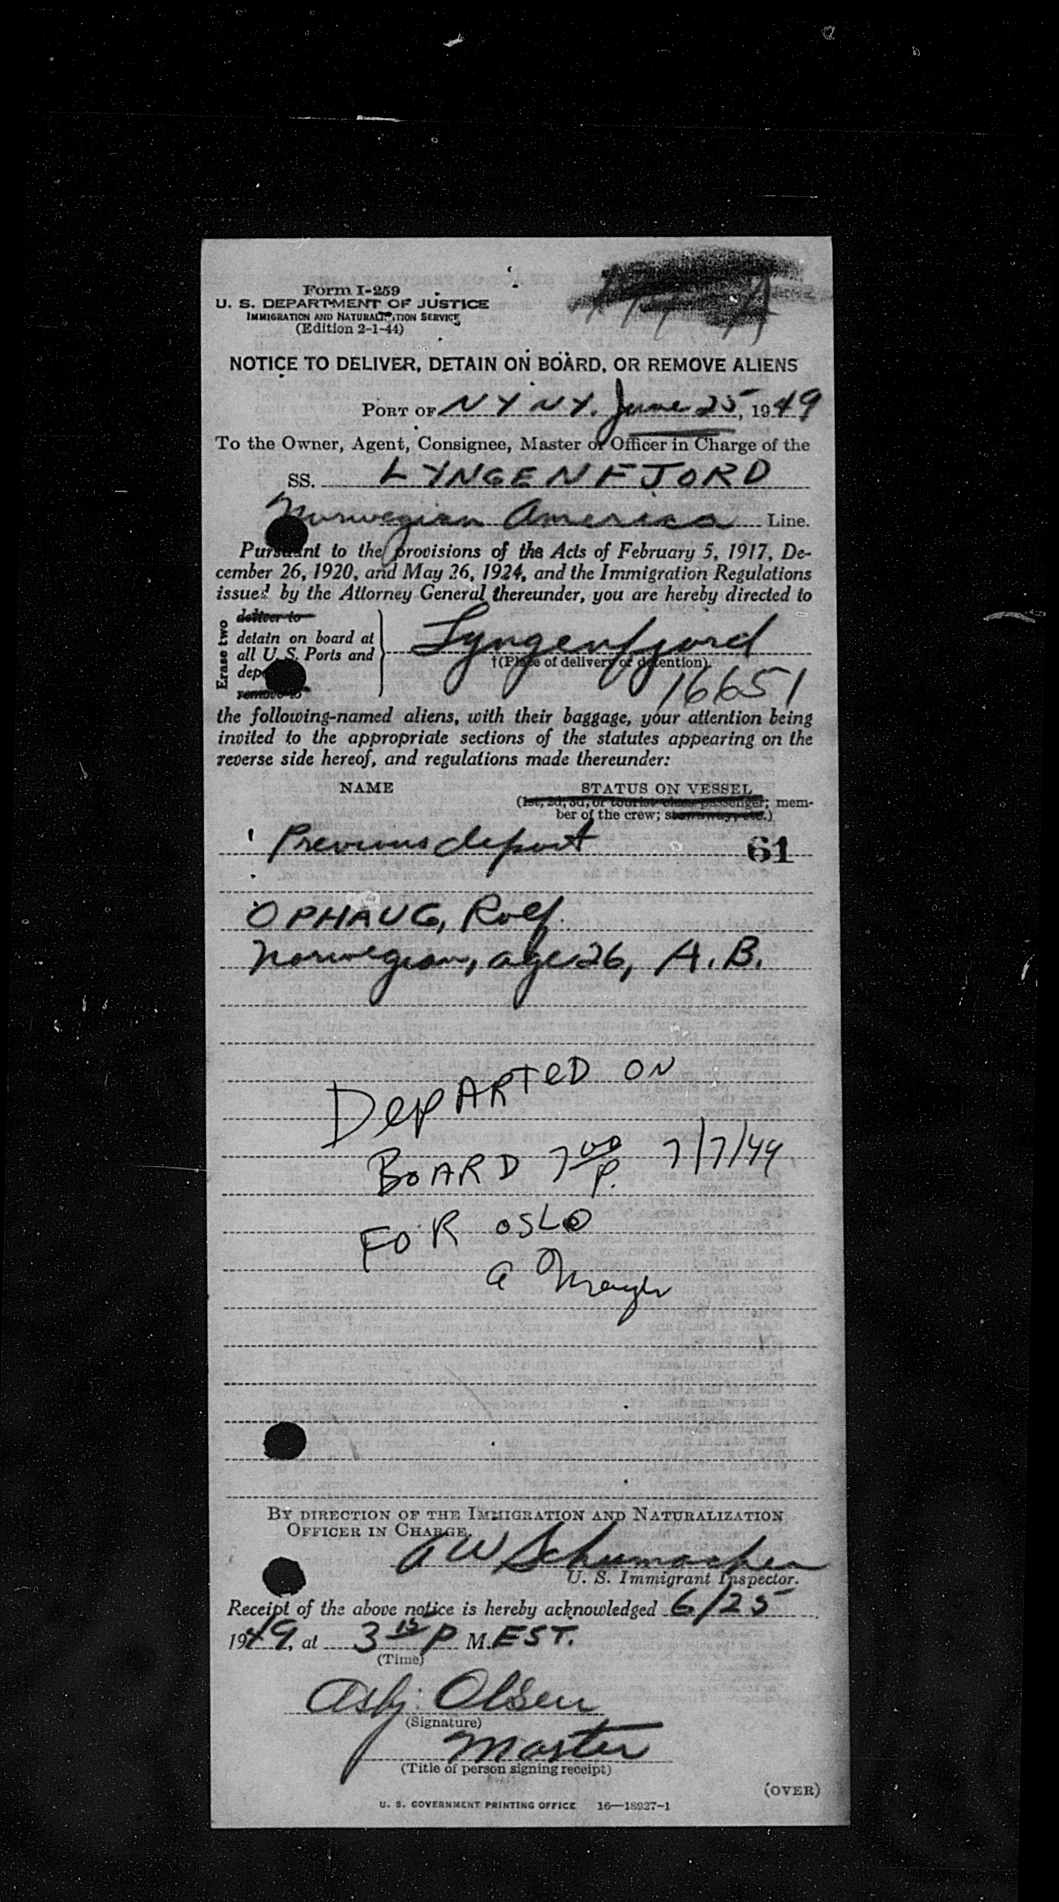 Form I-259
U. S. DEPARTMENT OF JUSTICE
IMMIGRATION AND NATURALIZATION SERVICE
(Edition 2-1-44)
NOTICE TO DELIVER, DETAIN ON BOARD, OR REMOVE ALIENS
PORT OF N Y N Y. June 25, 1949
To the Owner, Agent, Consignee, Master or Officer in Charge of the
SS. LYNGENFJORD
Norwegian America Line.
Pursuant to the provisions of the Acts of February 5, 1917, De-
cember 26, 1920, and May 26, 1924, and the Immigration Regulations
issued by the Attorney General thereunder, you are hereby directed to
Erase two
deliver to
detain on board at
all U. S. Ports and
remove to
Lyngenfjord
†(Place of delivery or detention).
16651
the following-named aliens, with their baggage, your attention being
invited to the appropriate sections of the statutes appearing on the
reverse side hereof, and regulations made thereunder:
NAME STATUS ON VESSEL
(1st, 2d, 3d, or tourist class passenger; mem-
ber of the crew; stowaway, etc.)
Previous deport 61
OPHAUG, Rolf.
Norwegian, age 26, A.B.
DEPARTED ON
BOARD 7 00 P. 7/7/49
FOR OSLO
BY DIRECTION OF THE IMMIGRATION AND NATURALIZATION
OFFICER IN CHARGE.
A W Schumacher
U. S. Immigrant Inspector.
Receipt of the above notice is hereby acknowledged 6/25
1949, at 3 15 P M. EST.
(Time)
Asbj. Olsen
(Signature)
Master
(Title of person signing receipt)
(OVER)
U. S. GOVERNMENT PRINTING OFFICE 16—18927-1